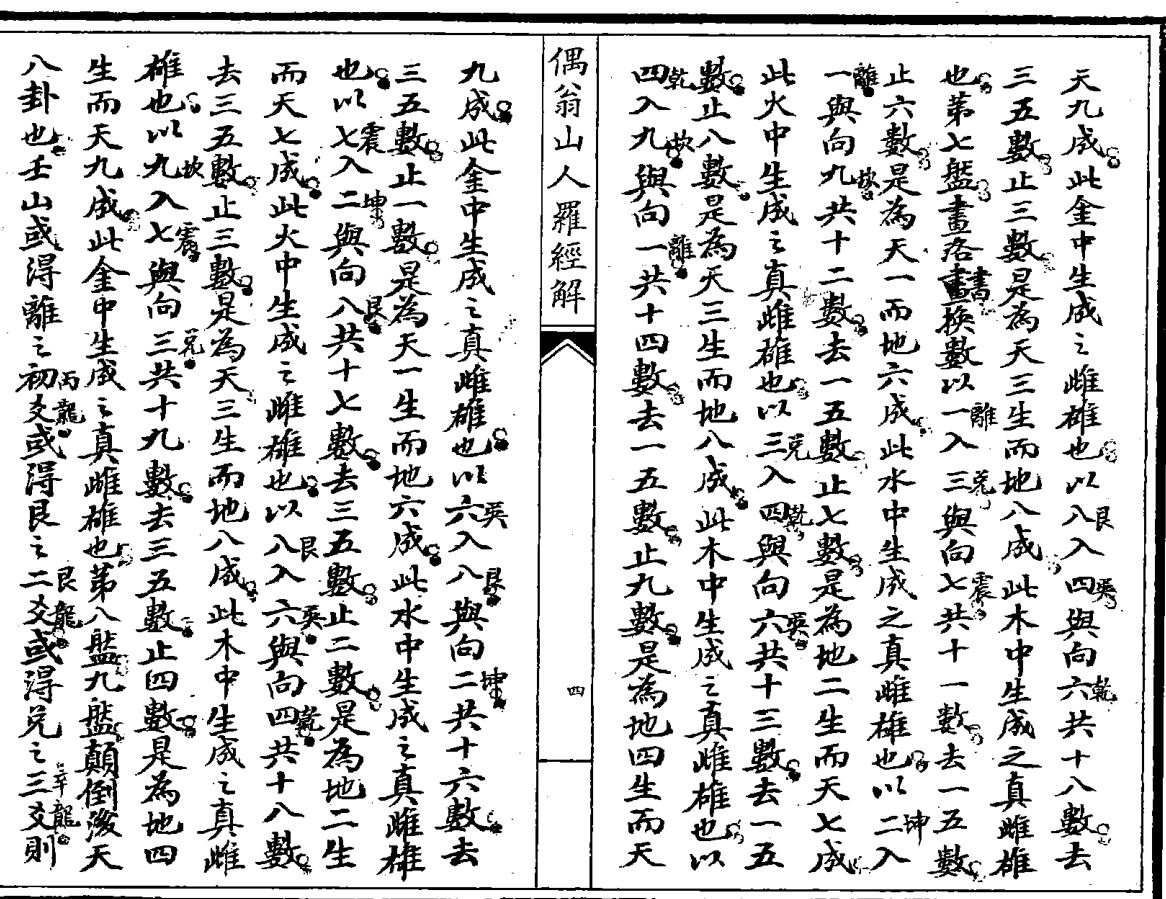 天九成此金中生成之雌雄也以八艮入四巽與向六乾共十八數去
三五數止三數是為天三生而地八成此木中生成之真雌雄
也第七盤畫洛畫書換數以一離入三兌與向七震共十一數去一五數
止六數是為天一而地六成此水中生成之真雌雄也以二坤入
一離與向九坎共十二數去一五數止七數是為地二生而天七成
此火中生成之真雌雄也以三兌入四乾與向六巽共十三數去一五
數止八數是為天三生而地八成此木中生成之真雌雄也以
四乾入九坎與向一離共十四數去一五數止九數是為地四生而天
偶翁山人羅經解
四
九成此金中生成之真雌雄也以六巽入八艮與向二坤共十六數去
三五數止一數是為天一生而地六成此水中生成之真雌雄
也以七震入二坤與向八艮共十七數去三五數止二數是為地二生
而天七成此火中生成之雌雄也以八艮入六巽與向四乾共十八數
去三五數止三數是為天三生而地八成此木中生成之真雌
雄也以九坎入七震與向三兌共十九數去三五數止四數是為地四
生而天九成此金中生成之真雌雄也第八盤九盤顛倒後天
八卦也壬山或得離之初爻丙龍或得艮之二爻艮龍或得兌之三爻辛龍則